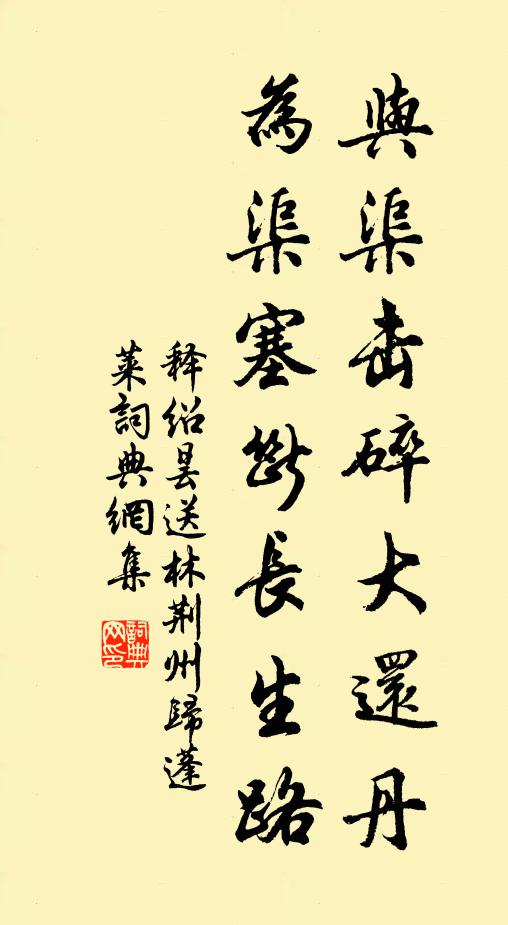 與渠击碎大還丹
為渠塞斷長生路
释绍昙送林荆州歸蓬
萊詞典網集
詞典
网印